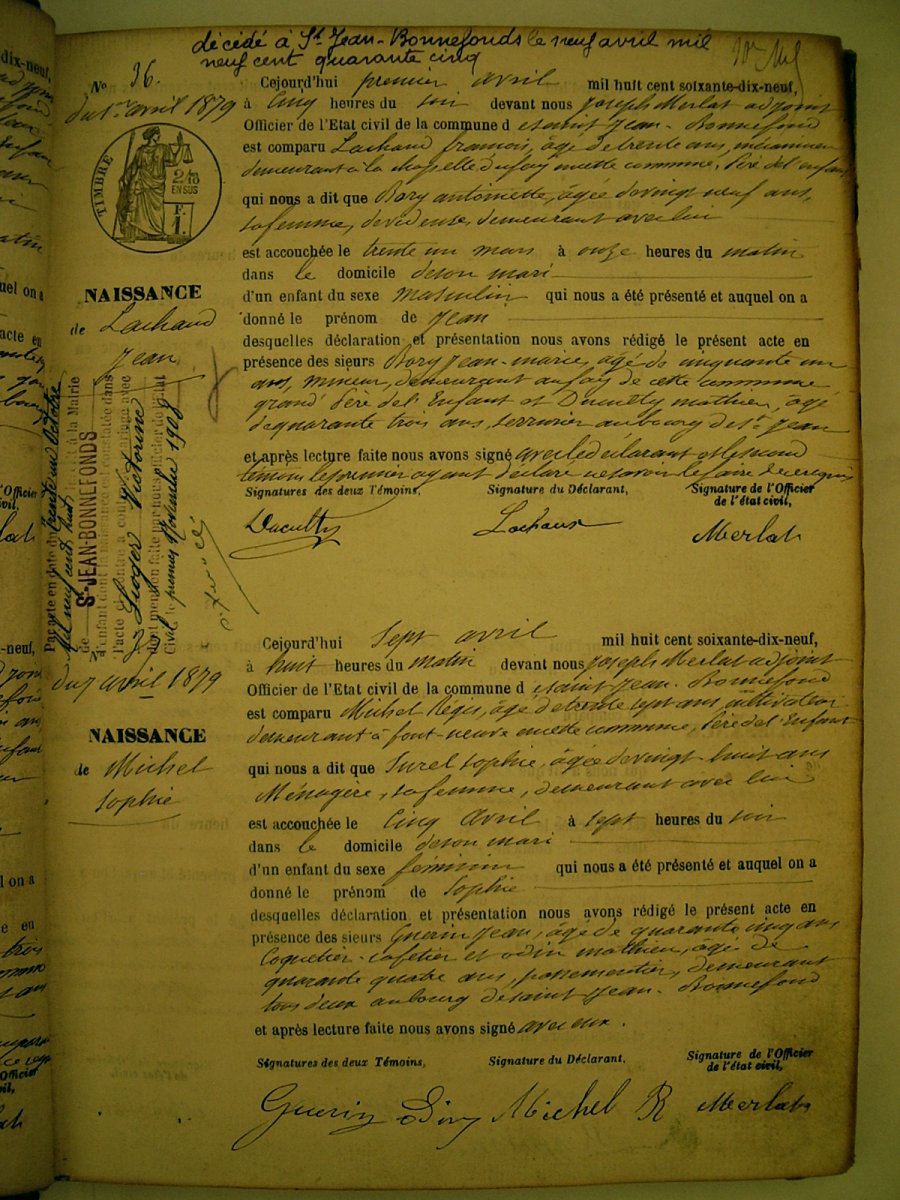 décédé à St Jean-Bonnefonds le neuf avril mil
neuf cent quarante cinq
No 36.
du 1er avril 1879
TIMBRE
2/10
EN SUS
F.
1.
NAISSANCE
de Lachaud
Jean
Par acte en date du trente un Octobre
mil neuf cent huit à la Mairie
de St-JEAN-BONNEFONDS
l'enfant dont la naissance est constatée dans
l'acte ci-contre a contracté mariage avec
Victorine
dont mention faite par nous officier de l'état
Civil, le premier Novembre 1908
Cejourd'hui premier avril mil huit cent soixante-dix-neuf,
à Cinq heures du soir devant nous Joseph Merlat adjoint
Officier de l'Etat civil de la commune de saint Jean-Bonnefond
est comparu Lachaud francois, âgé de trente ans,
demeurant à la chapelle du fay en cette commune, Père de l'enfant
qui nous a dit que Bory antoinette, âgée de vingt neuf ans,
sa femme, devideuse, demeurant avec lui
est accouchée le trente un mars à onze heures du matin
dans le domicile de son mari
d'un enfant du sexe masculin qui nous a été présenté et auquel on a
donné le prénom de Jean
desquelles déclaration et présentation nous avons rédigé le présent acte en
présence des sieurs Bory Jean-marie, âgé de cinquante un
ans, mineur, demeurant au fay de cette commune
grand Père de l'Enfant et Ducultty mathieu, âgé
de quarante trois ans, serrurier au bourg de St Jean
et après lecture faite nous avons signé avec le déclarant et le second
témoin le premier ayant déclaré ne savoir le faire de ce requis
Signatures des deux Témoins, Signature du Déclarant, Signature de l'Officier
de l'état civil,
Ducultty Lachaux Merlat
du 7 avril 1879
NAISSANCE
de Michel
Sophie
Cejourd'hui Sept avril mil huit cent soixante-dix-neuf,
à huit heures du matin devant nous Joseph Merlat adjoint
Officier de l'Etat civil de la commune de saint Jean-Bonnefond
est comparu Michel Régis, âgé de trente sept ans, cultivateur
demeurant à font-neuve en cette commune, Père de l'Enfant
qui nous a dit que Surel Sophie, âgée de vingt-huit ans
Ménagère, sa femme, demeurant avec lui
est accouchée le Cinq Avril à sept heures du soir
dans le domicile de son mari
d'un enfant du sexe féminin qui nous a été présenté et auquel on a
donné le prénom de Sophie
desquelles déclaration et présentation nous avons rédigé le présent acte en
présence des sieurs Guerin Jean, âgé de quarante cinq ans
Coquetier-Cafetier et odin mathieu, âgé de
quarante quatre ans, passementier, demeurant
tous deux au bourg de saint Jean-Bonnefond
et après lecture faite nous avons signé avec eux.
Signatures des deux Témoins, Signature du Déclarant, Signature de l'Officier
de l'état civil,
Guerin Michel R Merlat